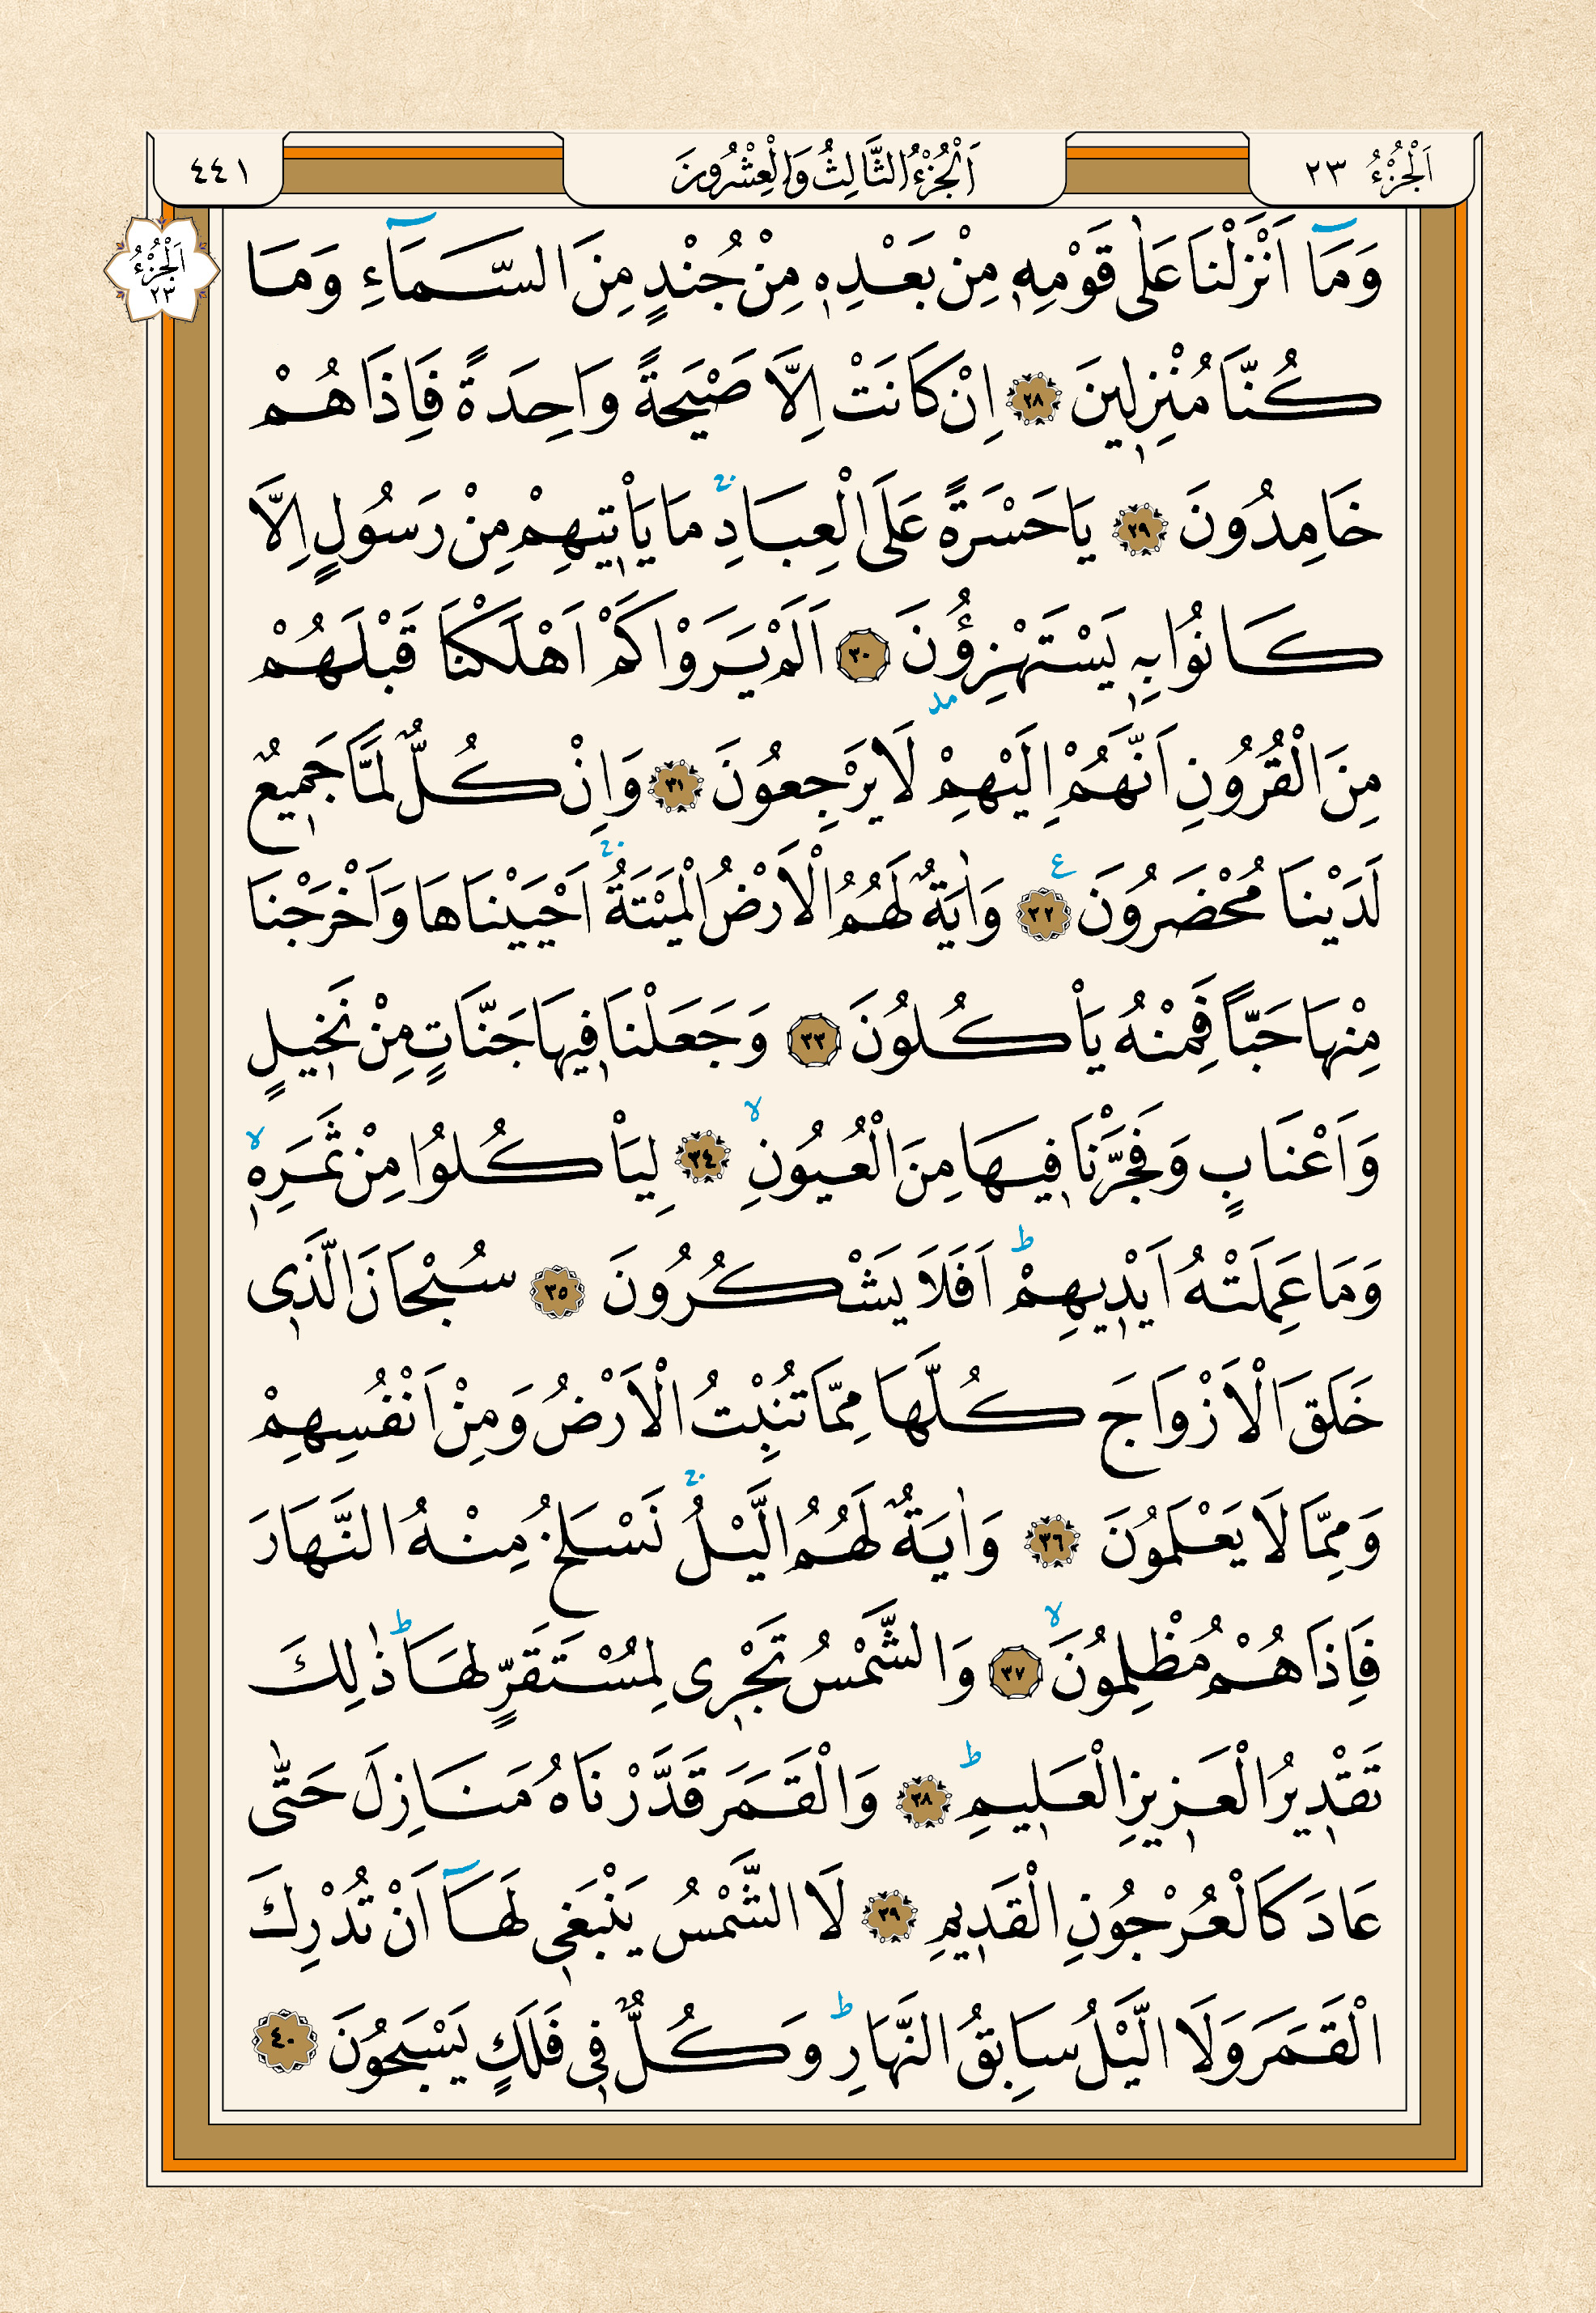 اَلْجُزْءُ ٢٣
اَلْجُزْءُ الثَّالِثُ وَالْعِشْرُونَ
٤٤١
اَلْجُزْءُ
٢٣
وَمَٓا اَنْزَلْنَا عَلٰى قَوْمِه۪ مِنْ بَعْدِه۪ مِنْ جُنْدٍ مِنَ السَّمَٓاءِ وَمَا
كُنَّا مُنْزِل۪ينَ ﴿٢٨﴾ اِنْ كَانَتْ اِلَّا صَيْحَةً وَاحِدَةً فَاِذَا هُمْ
خَامِدُونَ ﴿٢٩﴾ يَا حَسْرَةً عَلَى الْعِبَادِۚ مَا يَأْت۪يهِمْ مِنْ رَسُولٍ اِلَّا
كَانُوا بِه۪ يَسْتَهْزِؤُنَ ﴿٣٠﴾ اَلَمْ يَرَوْا كَمْ اَهْلَكْنَا قَبْلَهُمْ
مِنَ الْقُرُونِ اَنَّهُمْ اِلَيْهِمْ لَا يَرْجِعُونَ ﴿٣١﴾ وَاِنْ كُلٌّ لَمَّا جَم۪يعٌ
لَدَيْنَا مُحْضَرُونَ ع ﴿٣٢﴾ وَاٰيَةٌ لَهُمُ الْاَرْضُ الْمَيْتَةُۚ اَحْيَيْنَاهَا وَاَخْرَجْنَا
مِنْهَا حَبًّا فَمِنْهُ يَأْكُلُونَ ﴿٣٣﴾ وَجَعَلْنَا ف۪يهَا جَنَّاتٍ مِنْ نَخ۪يلٍ
وَاَعْنَابٍ وَفَجَّرْنَا ف۪يهَا مِنَ الْعُيُونِۙ ﴿٣٤﴾ لِيَأْكُلُوا مِنْ ثَمَرِه۪ۙ
وَمَا عَمِلَتْهُ اَيْد۪يهِمْۜ اَفَلَا يَشْكُرُونَ ﴿٣٥﴾ سُبْحَانَ الَّذ۪ي
خَلَقَ الْاَزْوَاجَ كُلَّهَا مِمَّا تُنْبِتُ الْاَرْضُ وَمِنْ اَنْفُسِهِمْ
وَمِمَّا لَا يَعْلَمُونَ ﴿٣٦﴾ وَاٰيَةٌ لَهُمُ الَّيْلُۚ نَسْلَخُ مِنْهُ النَّهَارَ
فَاِذَا هُمْ مُظْلِمُونَۙ ﴿٣٧﴾ وَالشَّمْسُ تَجْر۪ي لِمُسْتَقَرٍّ لَهَاۜ ذٰلِكَ
تَقْد۪يرُ الْعَز۪يزِ الْعَل۪يمِۜ ﴿٣٨﴾ وَالْقَمَرَ قَدَّرْنَاهُ مَنَازِلَ حَتّٰى
عَادَ كَالْعُرْجُونِ الْقَد۪يمِ ﴿٣٩﴾ لَا الشَّمْسُ يَنْبَغ۪ي لَهَٓا اَنْ تُدْرِكَ
الْقَمَرَ وَلَا الَّيْلُ سَابِقُ النَّهَارِۜ وَكُلٌّ ف۪ي فَلَكٍ يَسْبَحُونَ ﴿٤٠﴾